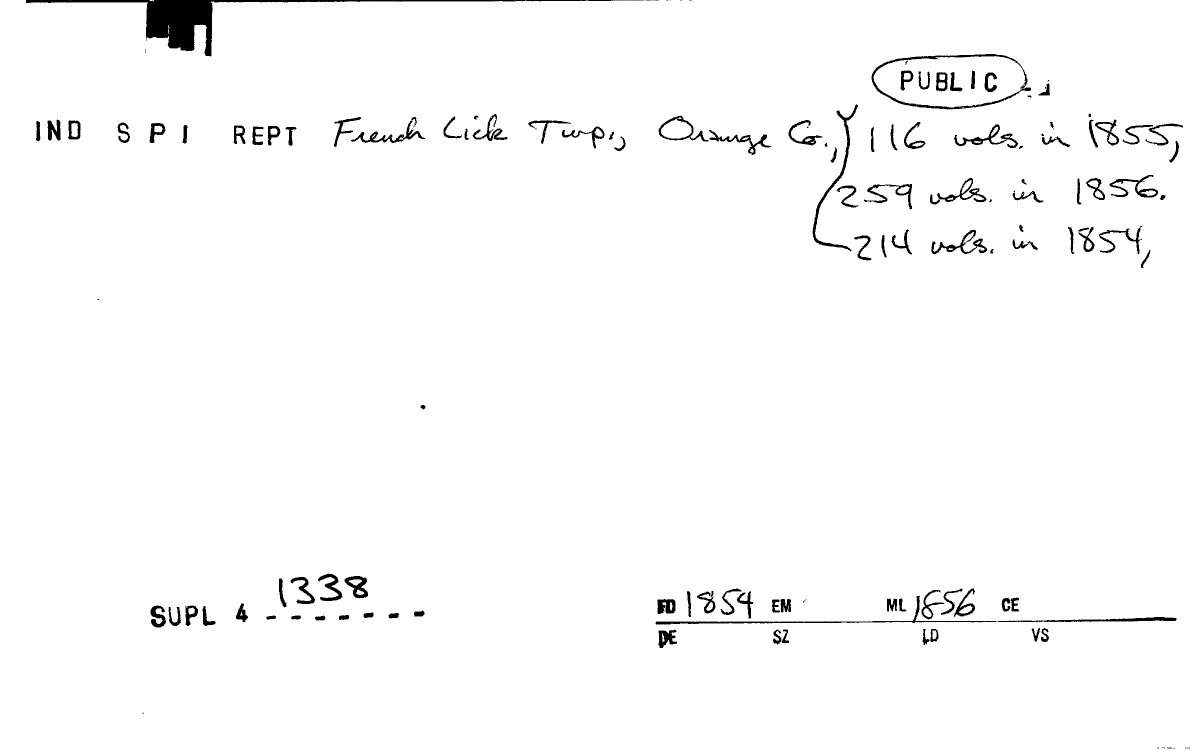 PUBLIC
IND S P I REPT French Lick Twp., Orange Co., 116 vols. in 1855,
259 vols. in 1856.
214 vols. in 1854,
SUPL 4 1338
FD 1854 EM ML 1856 CE
DE SZ LD VS